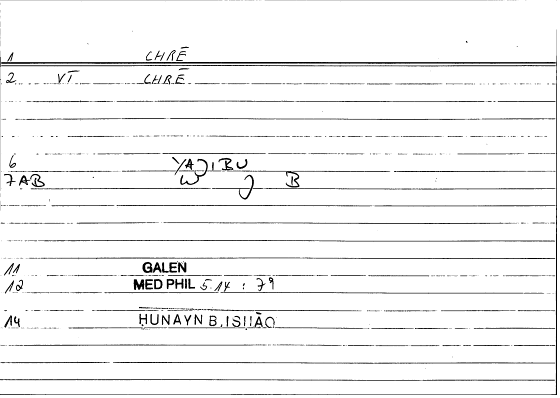 1 CHRĒ
2 VT CHRĒ
6 YAJIBU
7AB W J B
11 GALEN
12 MED PHIL 5.14 : 79
14 HUNAYN B. ISḤĀQ